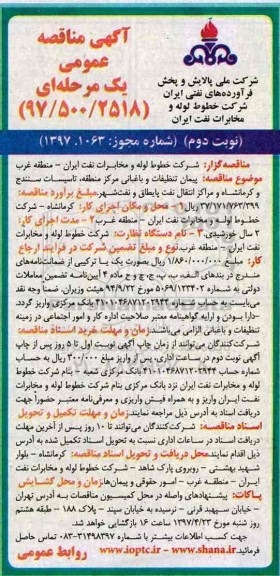 آگهی مناقصه
عمومی
یک مرحله‌ای
(۹۷/۵۰۰/۲۵۱۸)
شرکت ملی پالایش و پخش
فرآورده‌های نفتی ایران
شرکت خطوط لوله و
مخابرات نفت ایران
(نوبت دوم) (شماره مجوز: ۱۰۶۳. ۱۳۹۷)
مناقصه‌گزار: شرکت خطوط لوله و مخابرات نفت ایران - منطقه غرب
موضوع مناقصه: پیمان تنظیفات و باغبانی مرکز منطقه، تاسیسات سنندج
و کرمانشاه و مراکز انتقال نفت پایطاق و نفت‌شهر مبلغ برآورد مناقصه:
۳۷/۱۷۱/۷۶۳/۳۹۹ ریال ۱- محل و مکان اجرای کار: کرمانشاه - شرکت
خطوط لوله و مخابرات نفت ایران - منطقه غرب ۲- مدت اجرای کار:
۲ سال خورشیدی ۳- نام دستگاه نظارت: شرکت خطوط لوله و مخابرات
نفت ایران - منطقه غرب نوع و مبلغ تضمین شرکت در فرآیند ارجاع
کار: مبلغ ۱/۸۶۰/۰۰۰/۰۰۰ ریال بصورت یک یا ترکیبی از ضمانت‌نامه‌های
مندرج در بندهای الف، ب، پ، ج، چ و ح ماده ۴ آیین‌نامه تضمین معاملات
دولتی به شماره ۱۲۳۴۰۲/ت۵۰۶۵۹ه مورخ ۹۴/۹/۲۲ هیئت وزیران، ضمنا وجه نقد
می‌بایست به حساب سپرده بانک مرکزی واریز گردد.
-دارا بودن و ارایه گواهینامه معتبر صلاحیت اداره کار و امور اجتماعی در زمینه
تنظیفات و باغبانی الزامی می‌باشد. زمان و مهلت خرید اسناد مناقصه:
شرکت‌کنندگان می‌توانند از زمان چاپ آگهی نوبت اول تا ۵ روز پس از چاپ
آگهی نوبت دوم در ساعات اداری، پس از واریز مبلغ ۳۰۰/۰۰۰ ریال به حساب
شماره حساب ۴۱۰۱۰۴۶۸۷۱۲۰۲۹۴۴ بانک مرکزی شعبه - بنام شرکت خطوط
لوله و مخابرات نفت ایران نزد بانک مرکزی بنام شرکت خطوط لوله و مخابرات
نفت ایران واریز و به همراه فیش واریزی و معرفی‌نامه معتبر حضوراً جهت
دریافت اسناد به آدرس ذیل مراجعه نمایند. زمان و مهلت تکمیل و تحویل
اسناد مناقصه: شرکت‌کنندگان می‌توانند تا ۱۰ روز پس از آخرین مهلت
دریافت اسناد در ساعات اداری نسبت به تحویل اسناد تکمیل شده به آدرس
ذیل اقدام نمایند. محل دریافت و تحویل اسناد مناقصه: کرمانشاه - بلوار
شهید بهشتی - روبروی پارک شاهد - شرکت خطوط لوله و مخابرات نفت
ایران - منطقه غرب - امور حقوقی و پیمان‌ها. زمان و محل گشایش
پاکات: پیشنهادهای واصله در محل کمیسیون مناقصات به آدرس تهران
- خیابان سپهبد قرنی - نرسیده به خیابان سپند - پلاک ۱۸۸ - طبقه هشتم
روز شنبه مورخ ۱۳۹۷/۴/۲۳ ساعت ۱۶ بازگشایی خواهد شد.
جهت کسب اطلاعات بیشتر با شماره ۳۱۴۹۸۳۹۷-۰۸۳ تماس حاصل
فرمائید. www.shana.ir - www.ioptc.ir روابط عمومی